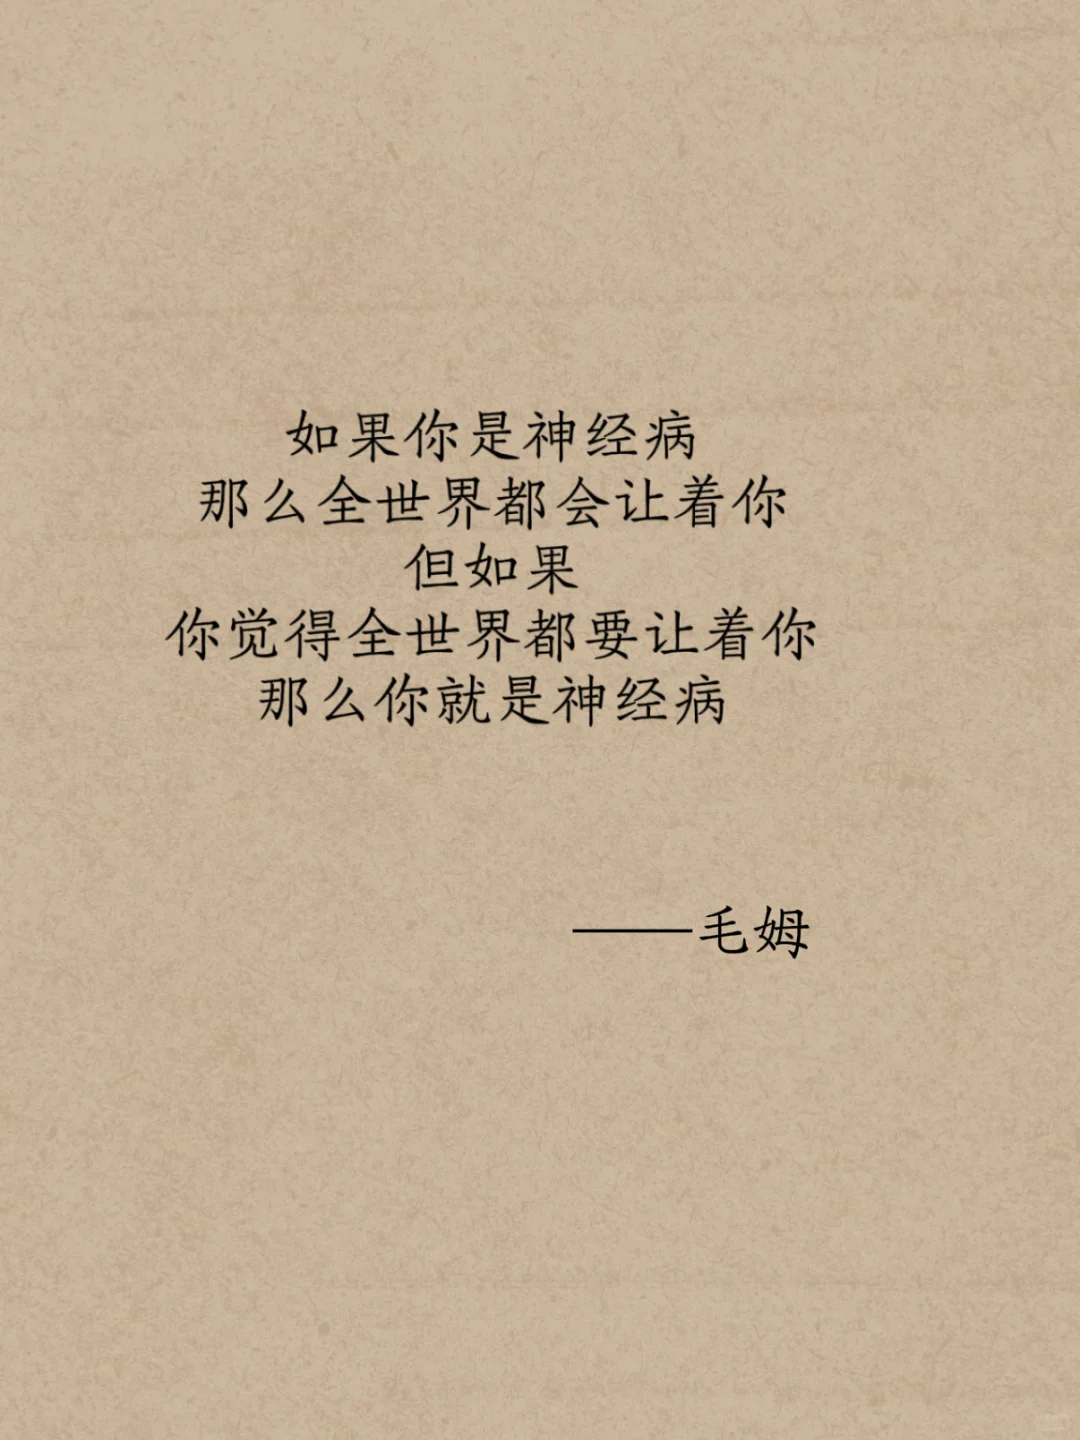 如果你是神经病
那么全世界都会让着你
但如果
你觉得全世界都要让着你
那么你就是神经病
——毛姆